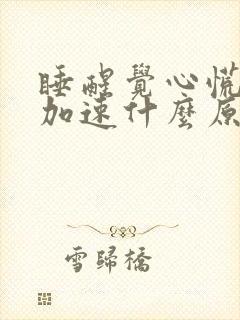 睡醒覺心慌
加速什麼原
雪歸橋